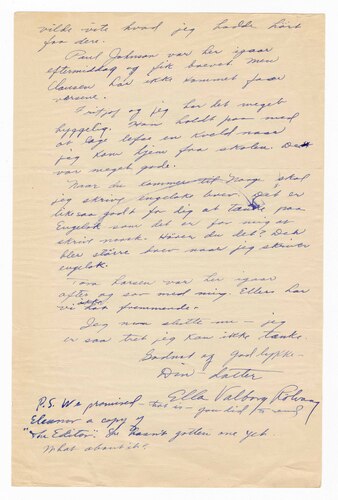 vilde vite hvad jeg hadde hört
fra dere.
Paul Johnson var her igaar
eftermiddag og fik brevet men
Clausen har ikke kommet
versene.
og jeg har det meget
hyggelig. Han holdt paa med
at en kveld naar
jeg kom hjem fra skolen. Det
var meget gode.
Naar du kommer til Norge skal
jeg skrive engelske brev. Det er
likesaa godt for dig at tænke paa
Engelsk som det er for mig at
skrive norsk. Hører du det? Det
blir større brev naar jeg skriver
engelsk.
Tom Larsen var her igaar
aften og sov med mig. Ellers har
vi ikke hat fremmende.
Jeg maa slutte nu - jeg
er saa træt jeg kan ikke tænke.
Godnat og god lykke -
Din datter
Ella Valborg Rolvaag
P.S. We promised - that is - you did to send
Eleanor a copy of
"The Editor". She hasn't gotten one yet.
What about it?